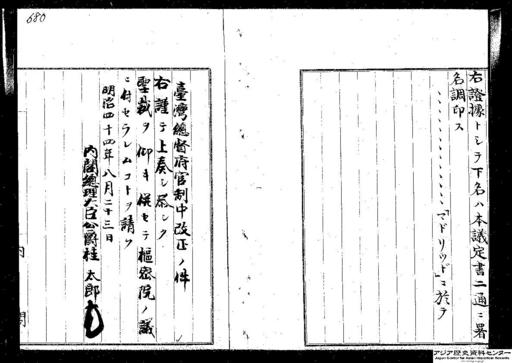 右證據トシテ下名ハ本議定書二通ニ署
名調印ス
「マドリッド」ニ於テ
680
臺灣總督府官制中改正ノ件
右謹テ上奏シ恭シク
聖裁ヲ仰キ併セテ樞密院ノ議
ニ付セラレムコトヲ請フ
明治四十四年八月二十三日
內閣總理大臣公爵桂太郎
內閣
アジア歴史資料センター
Japan Center for Asian Historical Records